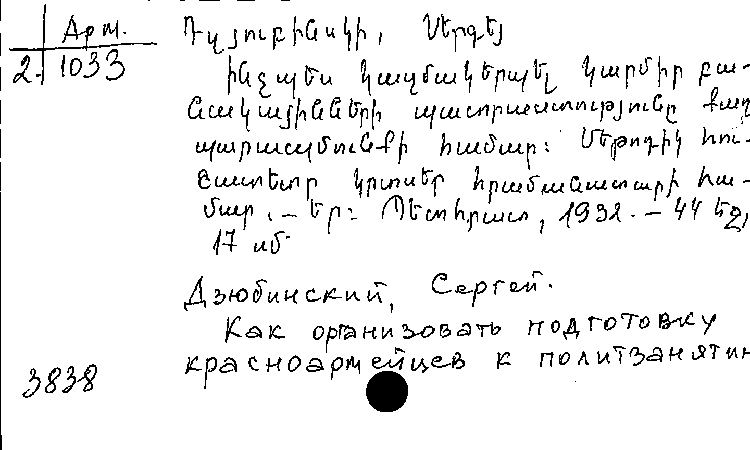 Арм.
2. 1033
Դզյուբինսկի, Սերգեյ
Ինչպես կազմակերպել կարմիր բա-
նակայինների պատրաստությունը քաղ
պարապմունքի համար: Մեթոդիկ
կրտսեր հրամանատարի հա-
մար. – Եր: Պետհրատ, 1932. – 44 էջ,
17 սմ
Дзюбинский, Сергей.
Как организовать подготовку
красноармейцев к политзаняти
3838